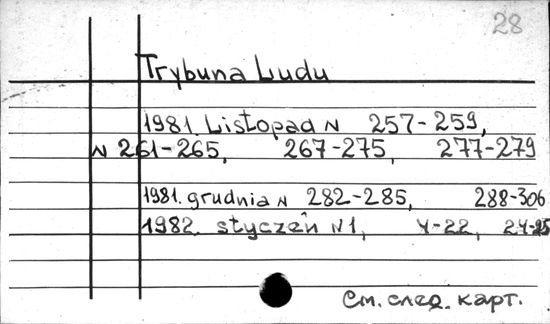 28
Trybuna Ludu
1981. Listopad N 257-259,
N 261-265, 267-275, 277-279
1981. grudnia N 282-285, 288-306
1982. styczeń N1, 4-22, 24-25
См. след. карт.